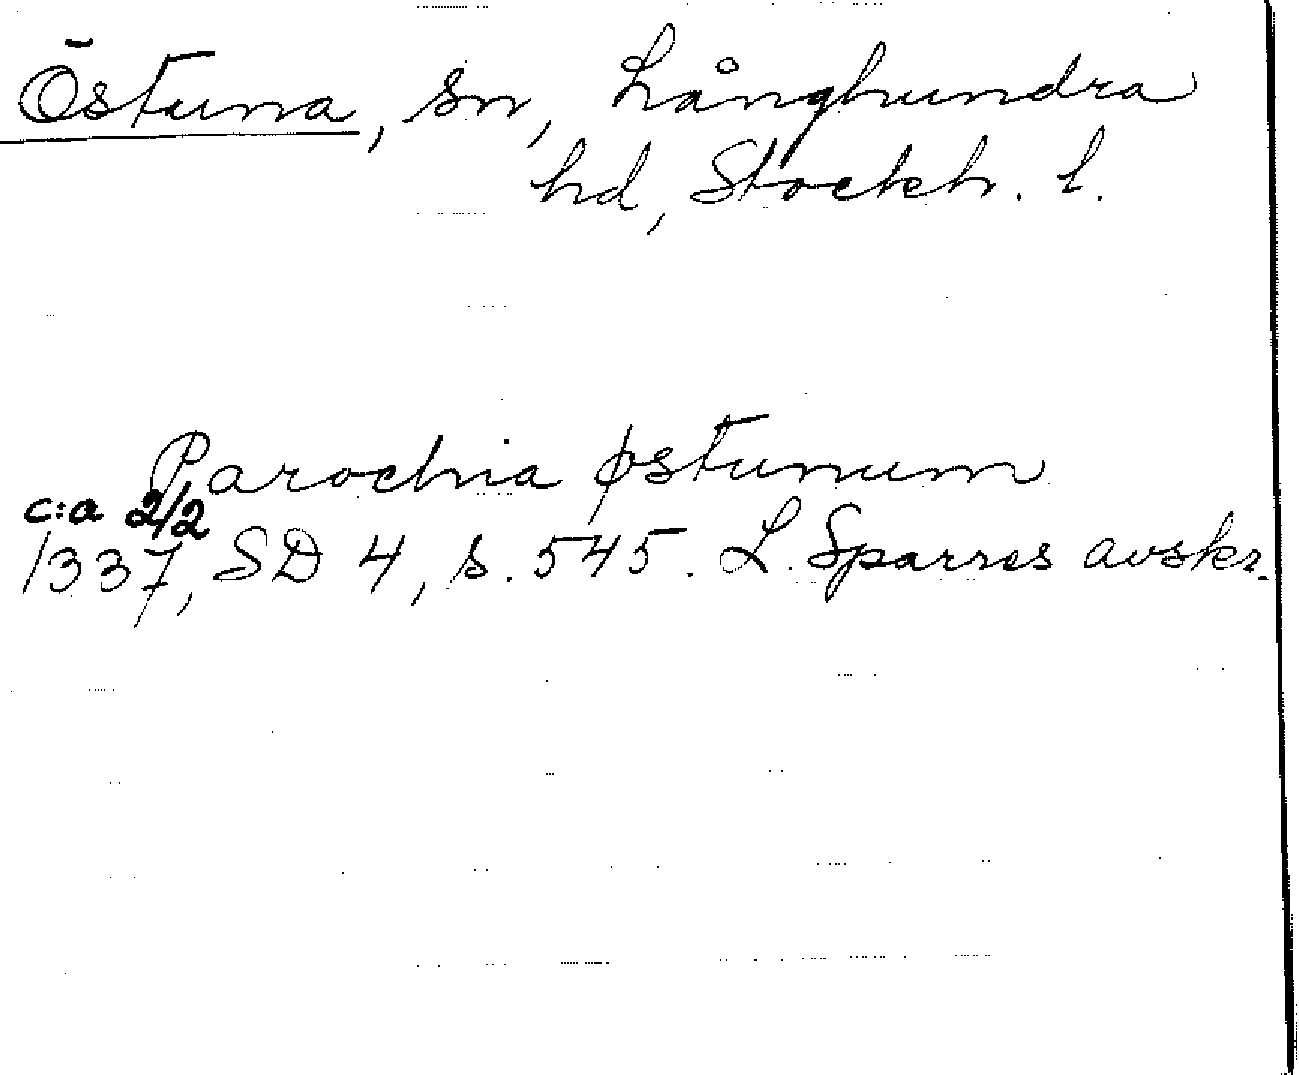 Östuna, sn, Långhundra
hd, Stockh. l.
Parochia østunum
c:a 2/2
1337, SD 4, s. 545. L. Sparres avskr.